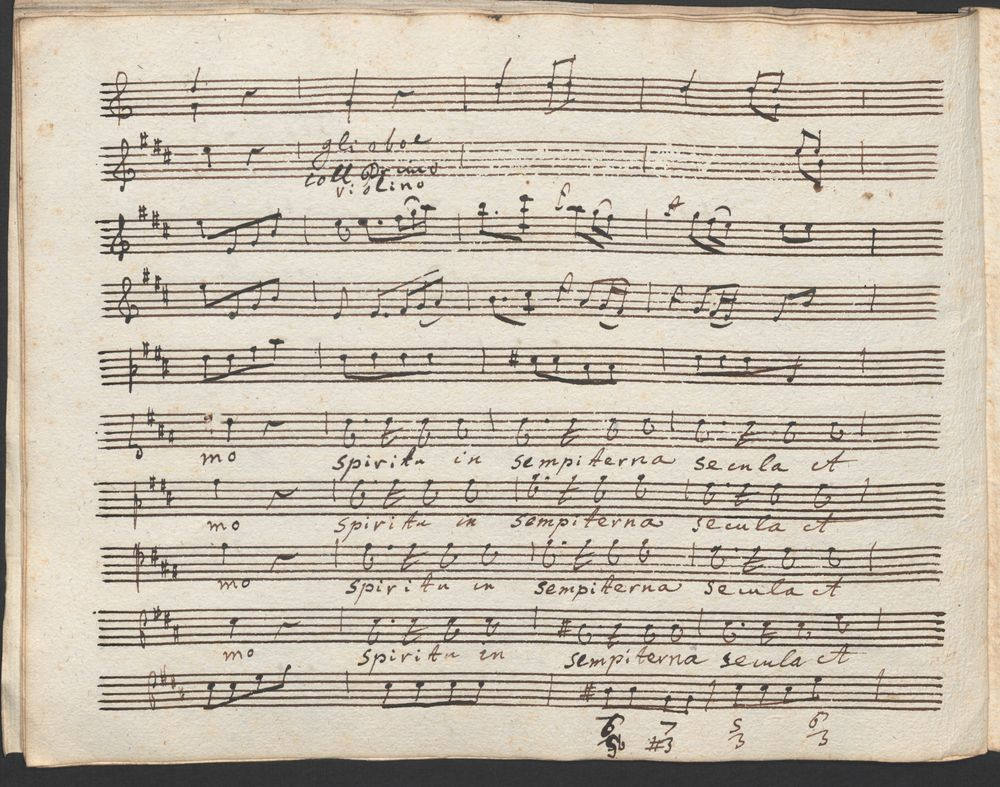 gli oboe
coll Primo
violino
mo spiritu in sempiterna secula et
mo spiritu in sempiterna secula et
mo spiritu in sempiterna secula et
mo spiritu in sempiterna secula et
6 7 5 6
5 #3 3 3